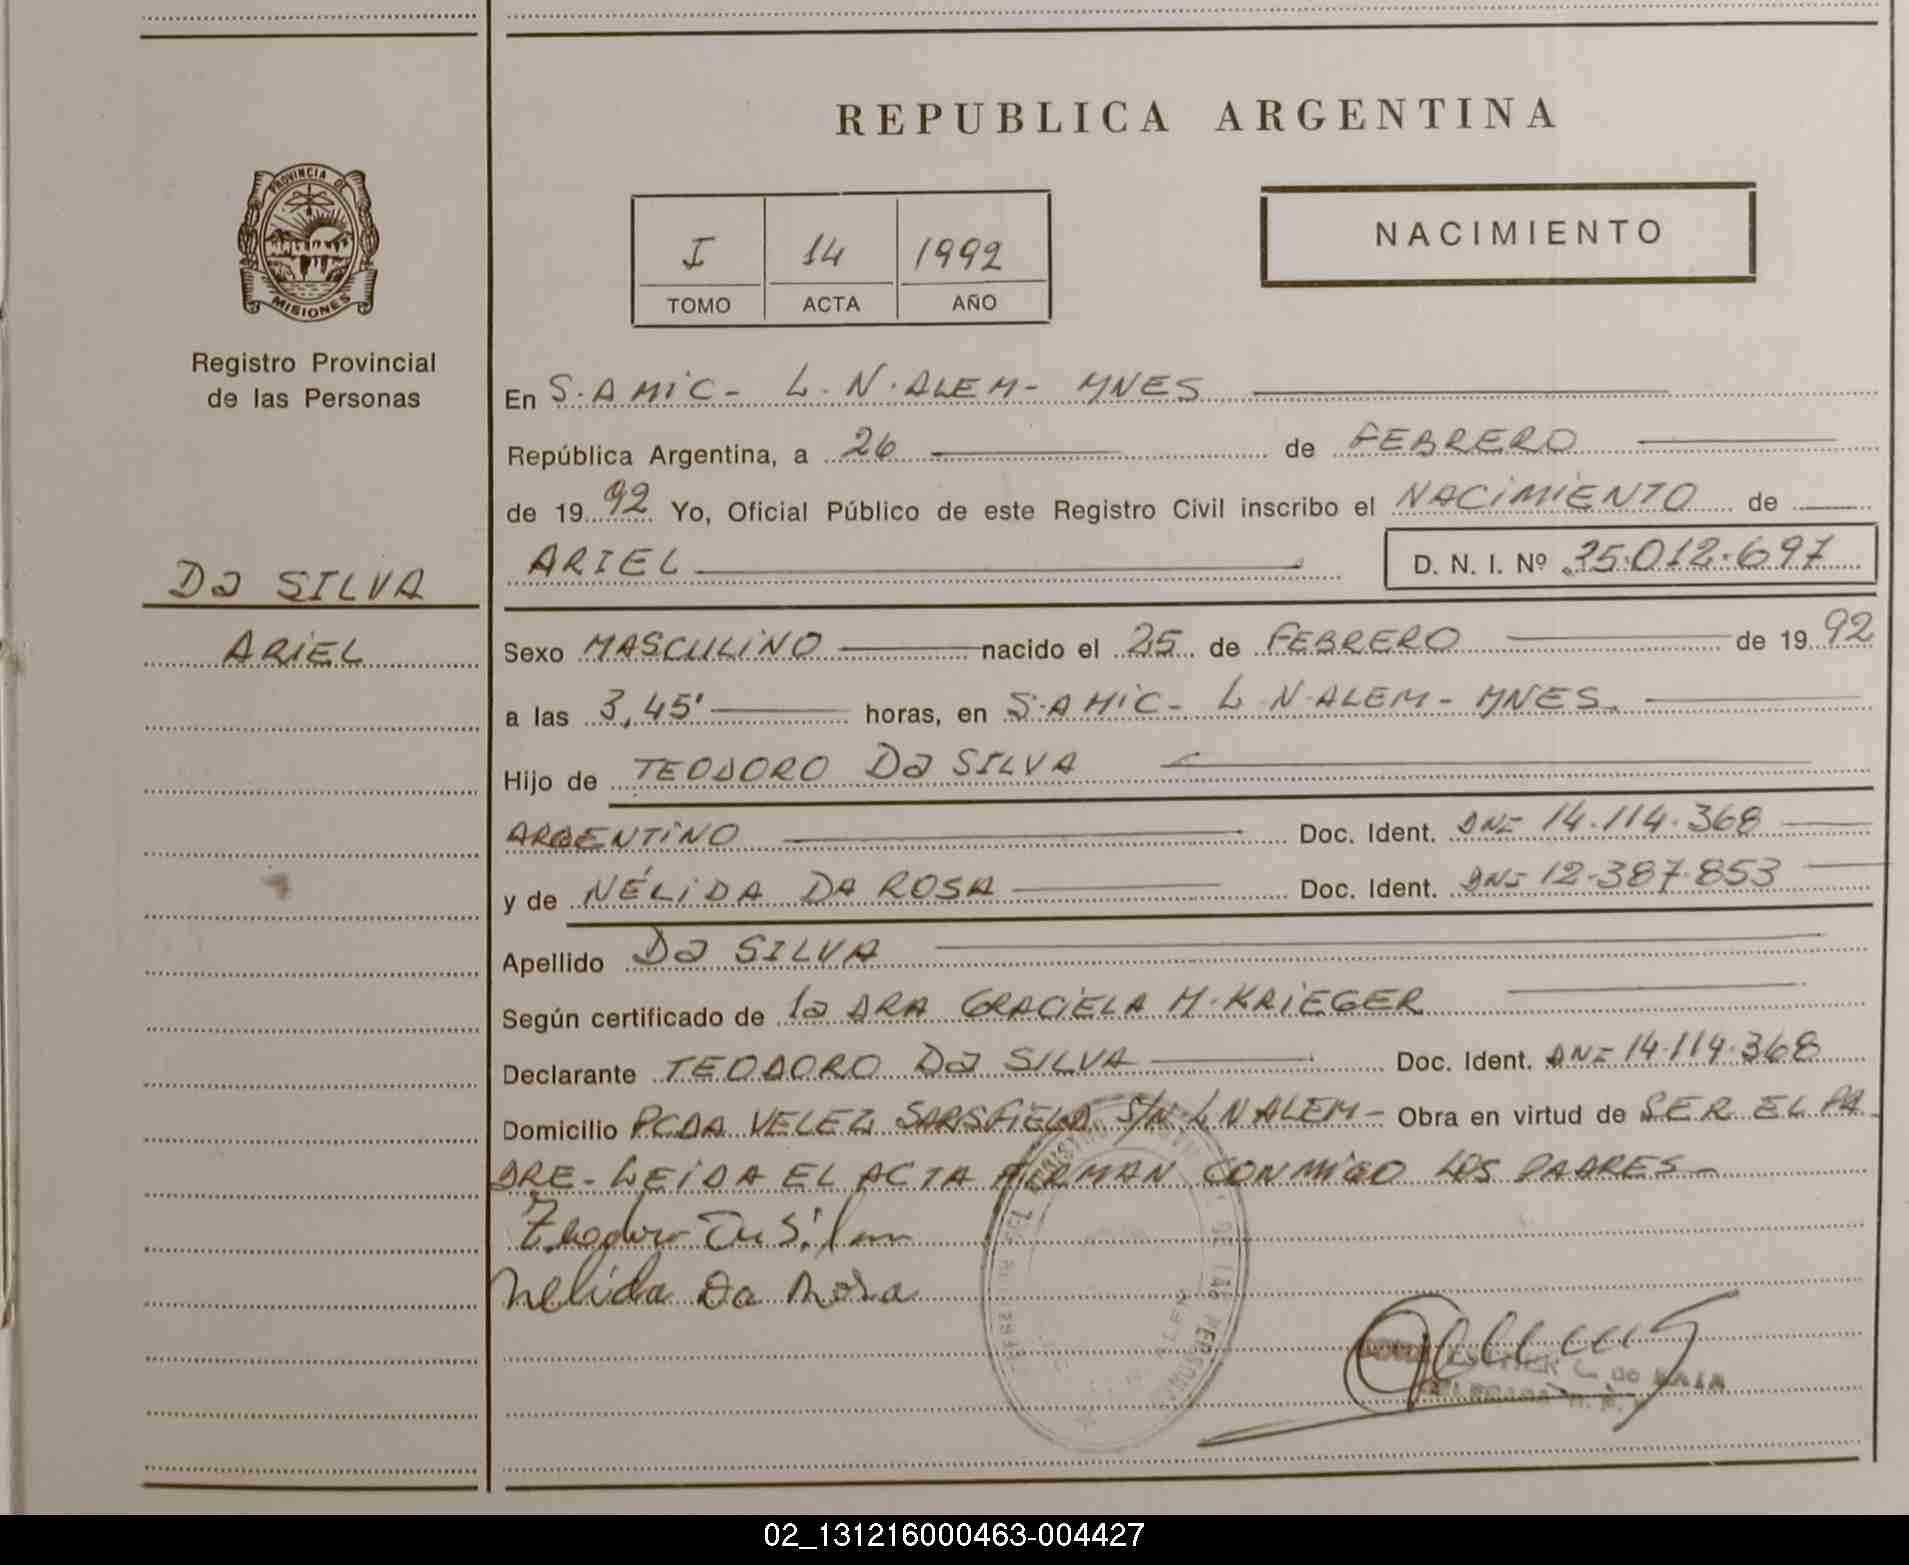 REPUBLICA ARGENTINA
PROVINCIA DE
MISIONES
Registro Provincial
de las Personas
I 14 1992
TOMO ACTA AÑO
NACIMIENTO
En S. AMIC - L. N. ALEM - MNES
República Argentina, a 26 de FEBRERO
de 1992 Yo, Oficial Público de este Registro Civil inscribo el NACIMIENTO de
ARIEL D. N. I. Nº 35.012.697
Da SILVA
ARIEL
Sexo MASCULINO nacido el 25 de FEBRERO de 1992
a las 3,45' horas, en S. AMIC - L. N. ALEM - MNES.
Hijo de TEODORO Da SILVA
ARGENTINO Doc. Ident. DNI 14.114.368
y de NÉLIDA DA ROSA Doc. Ident. DNI 12.387.853
Apellido Da SILVA
Según certificado de la DRA GRACIELA M. KRIEGER
Declarante TEODORO Da SILVA Doc. Ident. DNI 14.114.368
Domicilio PCDA VELEZ SARSFIELD S/N L N ALEM - Obra en virtud de SER EL PA
DRE - LEIDA EL ACTA FIRMAN CONMIGO LOS PADRES -
Teodoro Da Silva
Nelida Da Rosa
02_131216000463-004427